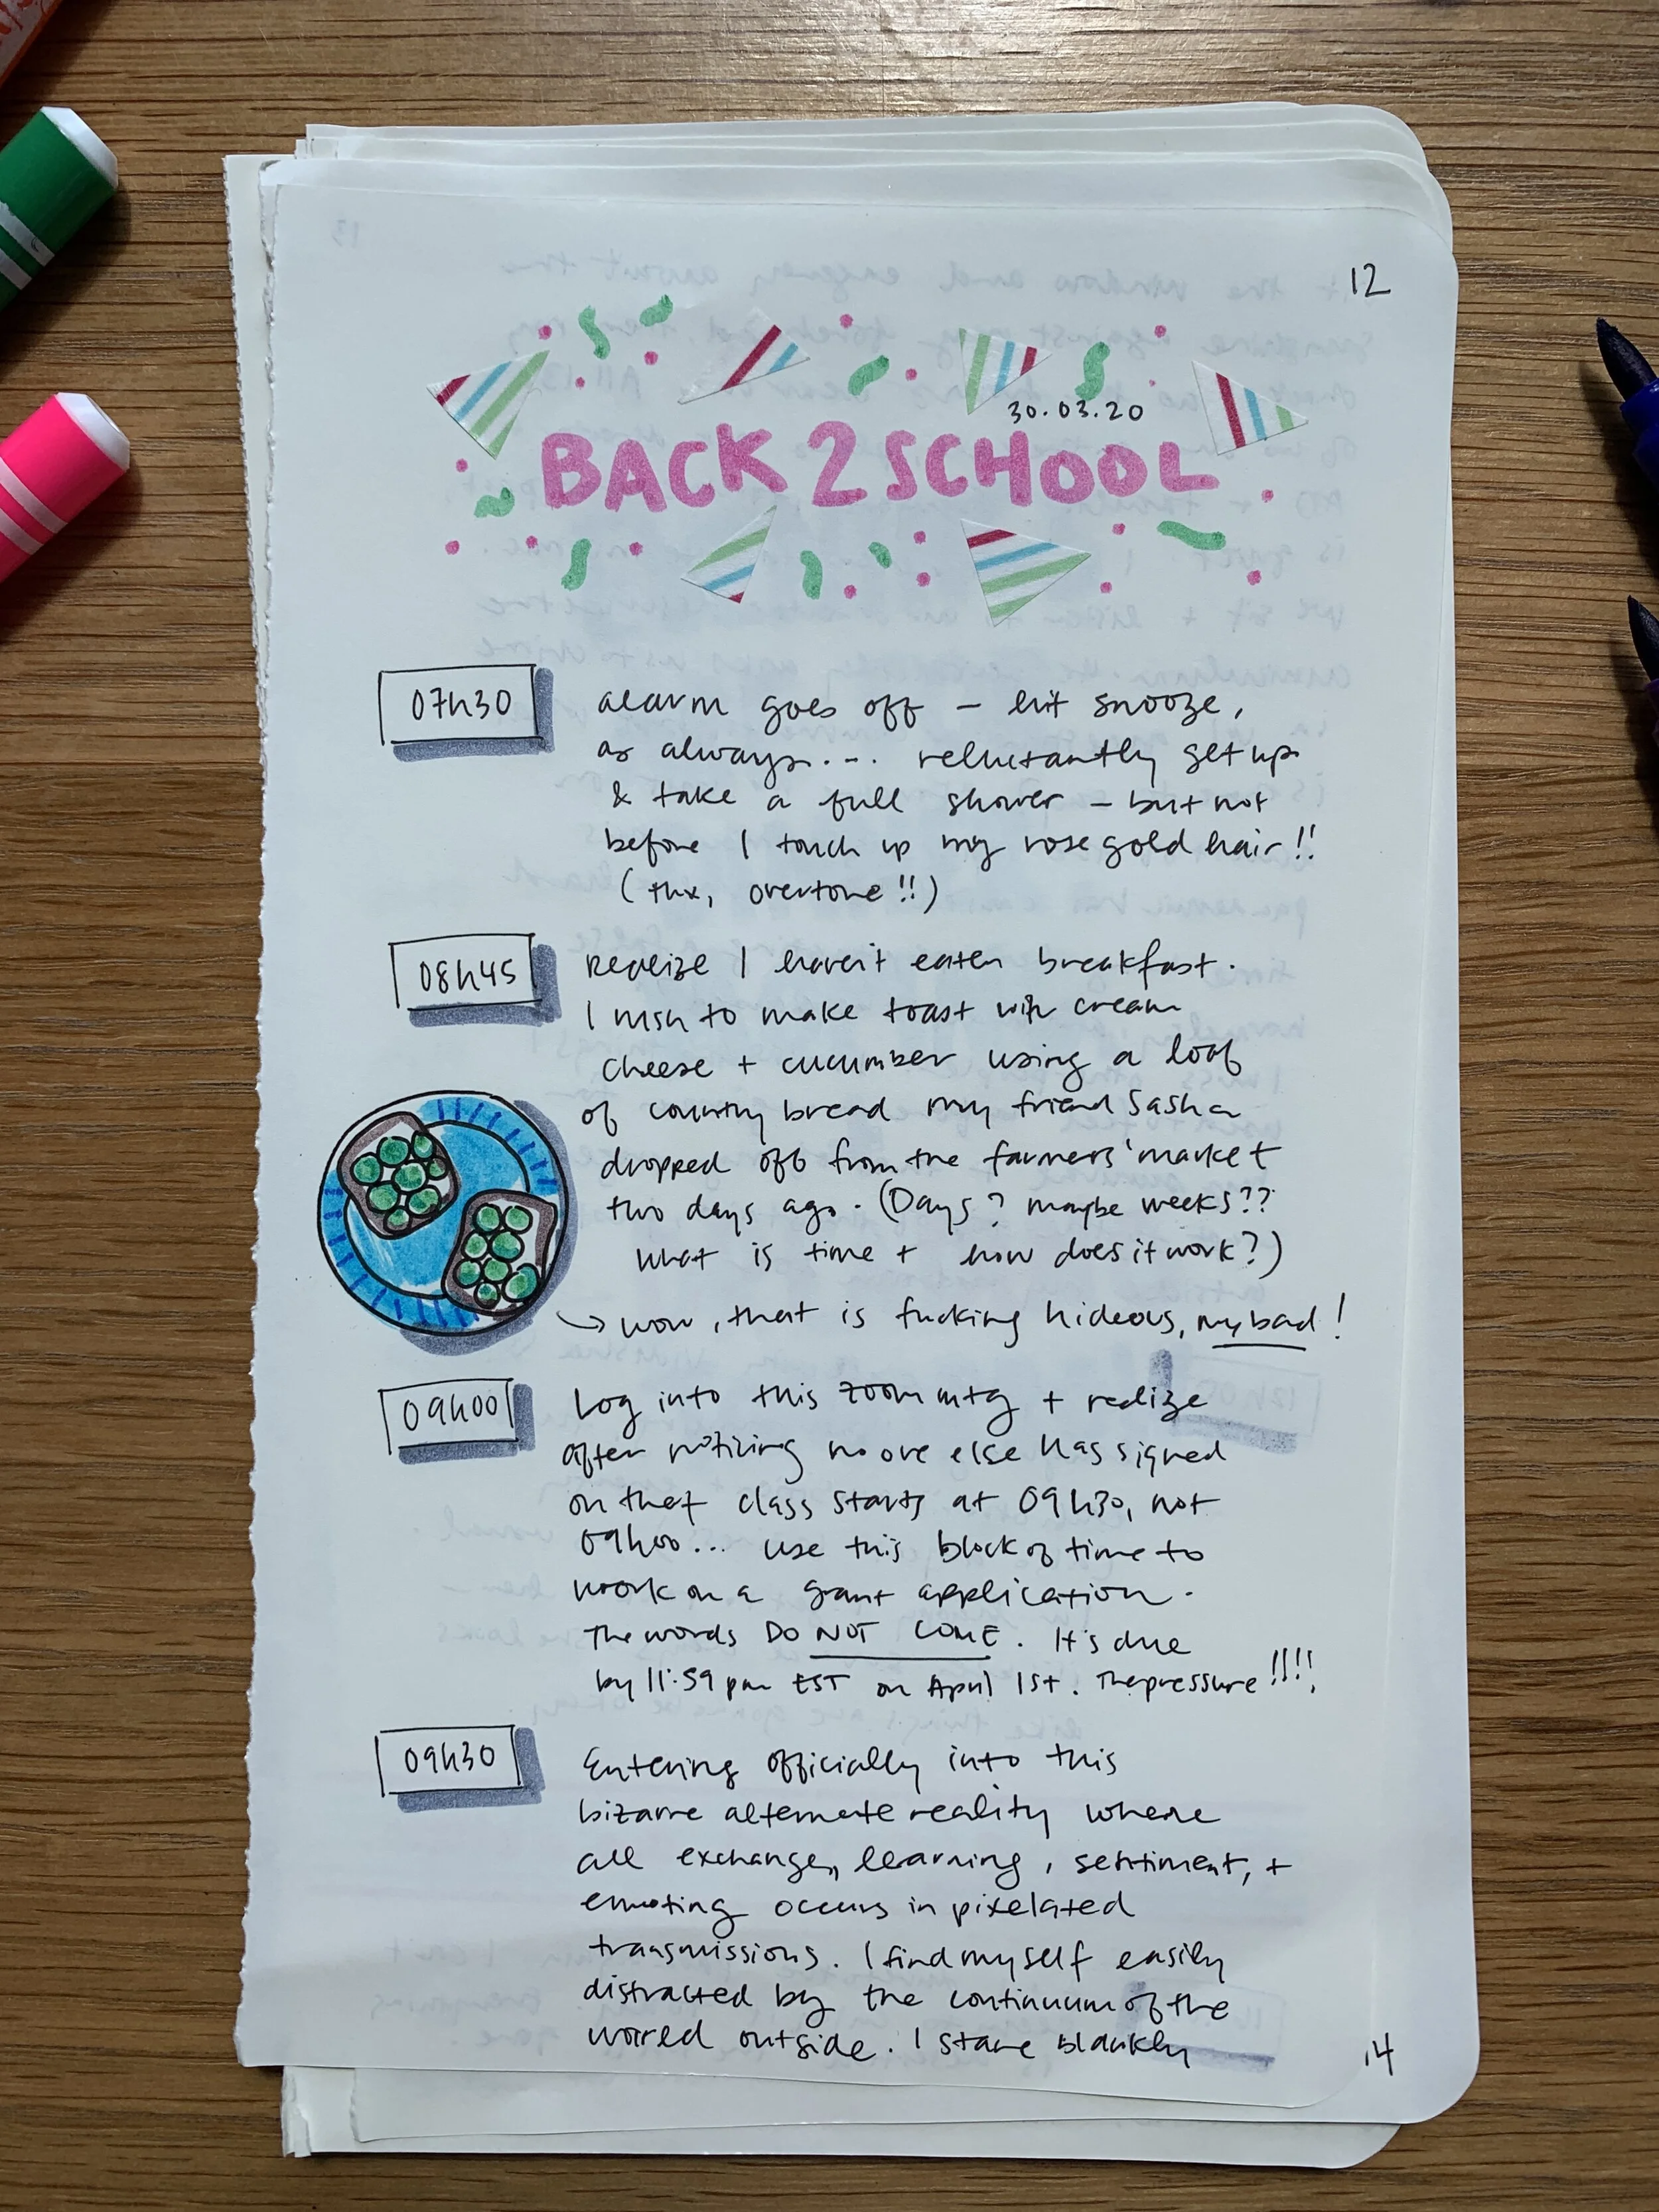 12
30.03.20
BACK 2 SCHOOL
07h30
alarm goes off – hit snooze,
as always... reluctantly get up
& take a full shower – but not
before I touch up my rose gold hair!!
(thx, overtone!!)
08h45
Realize I haven't eaten breakfast.
I rush to make toast with cream
cheese + cucumber using a loaf
of country bread my friend Sasha
dropped off from the farmers' market
two days ago. (Days? maybe weeks??
What is time + how does it work?)
→ wow, that is fucking hideous, my bad!
09h00
Log into this zoom mtg + realize
after noticing no one else has signed
on that class starts at 09h30, not
09h00... use this block of time to
work on a grant application.
The words DO NOT COME. It's due
by 11:59 pm EST on April 1st. The pressure!!!!
09h30
Entering officially into this
bizarre alternate reality where
all exchange, learning, sentiment, +
emoting occurs in pixelated
transmissions. I find myself easily
distracted by the continuum of the
world outside. I stare blankly
14